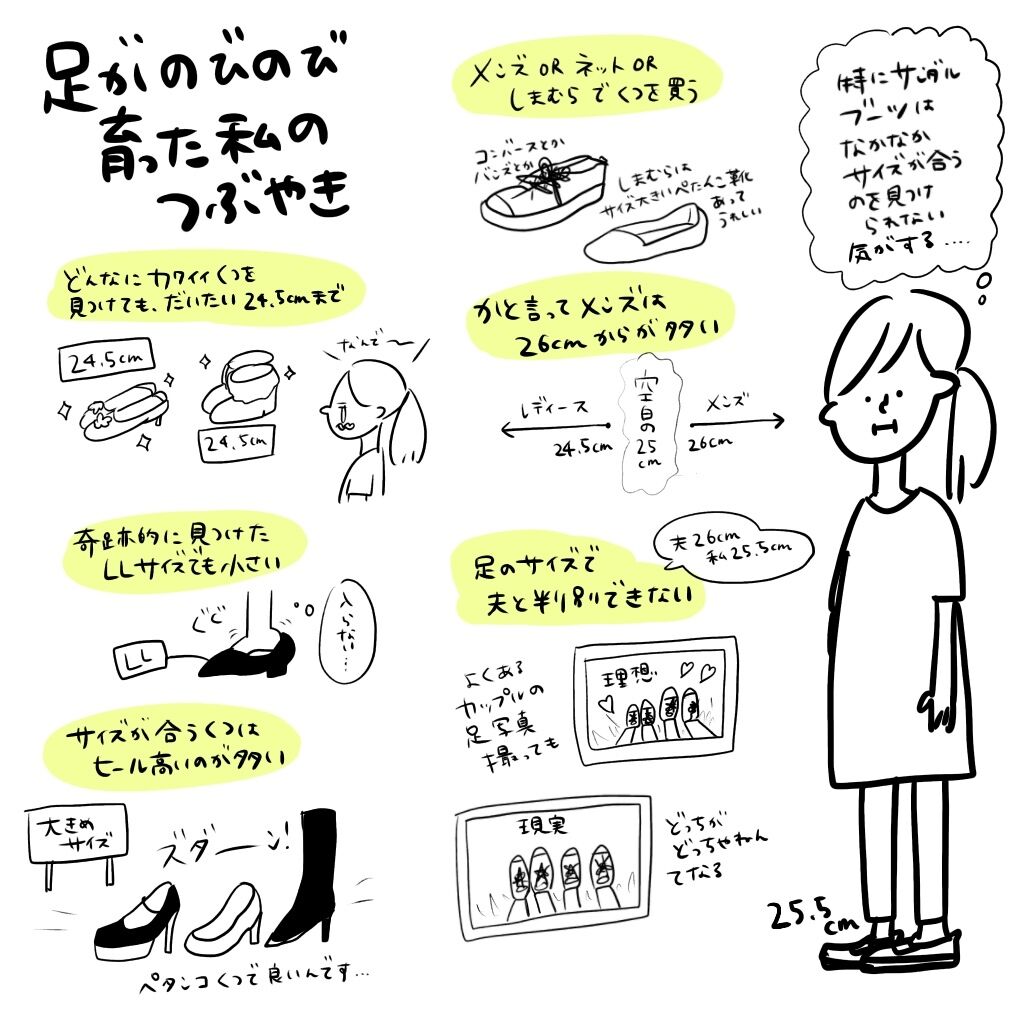 足がのびのび
育った私の
つぶやき
どんなにカワイイくつを
見つけても、だいたい24.5cmまで
24.5cm
24.5cm
なんで〜
奇跡的に見つけた
LLサイズでも小さい
ぐぐ
LL
入らない…
サイズが合うくつは
ヒール高いのが多い
大きめ
サイズ
ズダーン!
ペタンコくつで良いんです…
メンズORネットOR
しまむらでくつを買う
コンバースとか
バンズとか
しまむらは
サイズ大きいぺたんこ靴
あって
うれしい
かと言ってメンズは
26cmからが多い
レディース
24.5cm
空白の25cm
メンズ
26cm
足のサイズで
夫と判別できない
夫26cm
私25.5cm
よくある
カップルの
足写真
撮っても
理想
現実
どっちが
どっちやねん
てなる
特にサンダル
ブーツは
なかなか
サイズが合う
のを見つけ
られない
気がする....
25.5cm